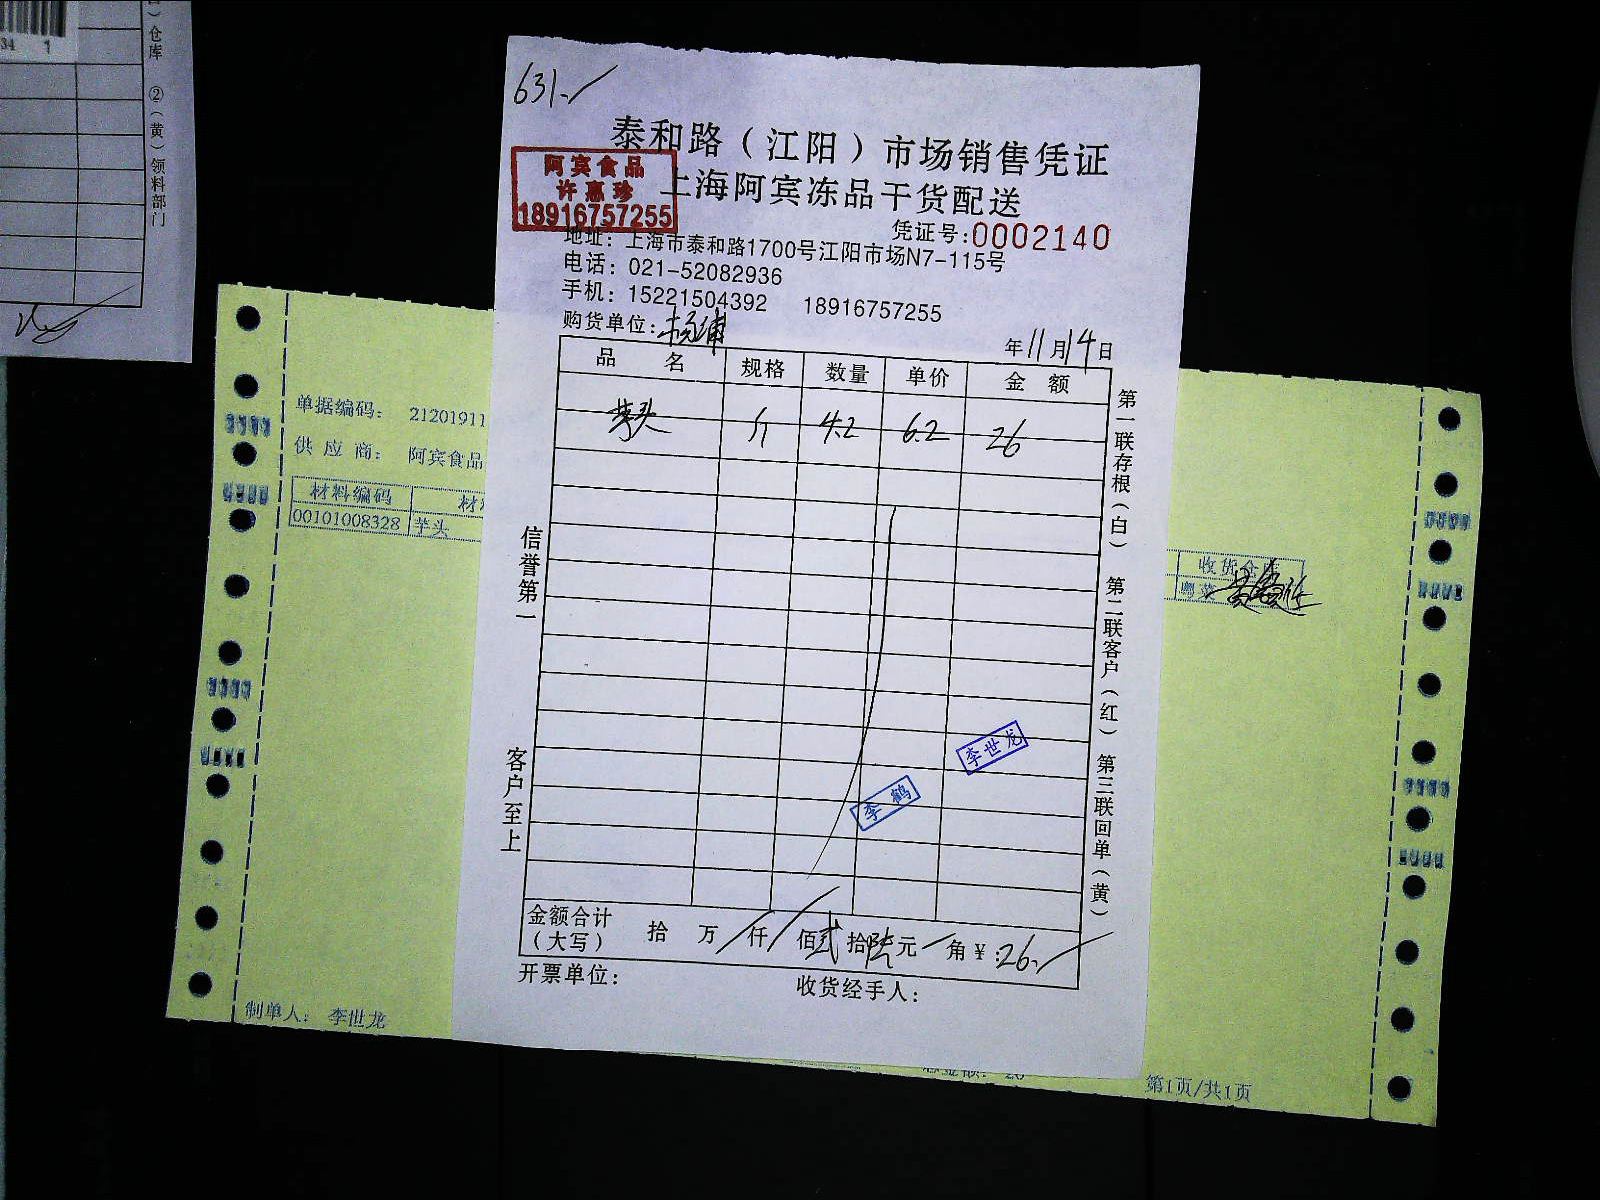 34 1
）仓库 ②（黄）领料部门
631.
泰和路（江阳）市场销售凭证
阿宾食品
许惠珍
18916757255
上海阿宾冻品干货配送
凭证号:0002140
地址：上海市泰和路1700号江阳市场N7-115号
电话：021-52082936
手机：15221504392 18916757255
购货单位：杨浦
年11月14日
品名 规格 数量 单价 金额
芋头 斤 4.2 6.2 26
信誉第一
客户至上
第一联存根（白） 第二联客户（红） 第三联回单（黄）
李世龙
李鹤
金额合计（大写） 拾 万 仟 佰 贰拾陆元 角 ¥:26.
开票单位： 收货经手人：
单据编码： 21201911
供应商： 阿宾食品
材料编码 材
00101008328 芋头
收货仓库
粤菜
制单人： 李世龙
第1页/共1页